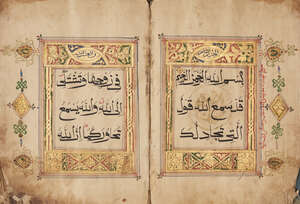 بسم الله الرحمن الرحيم
قد سمع الله قول
التي تجادلك
في زوجها وتشتكي
إلى الله والله يسمع
تحاوركما إن الله